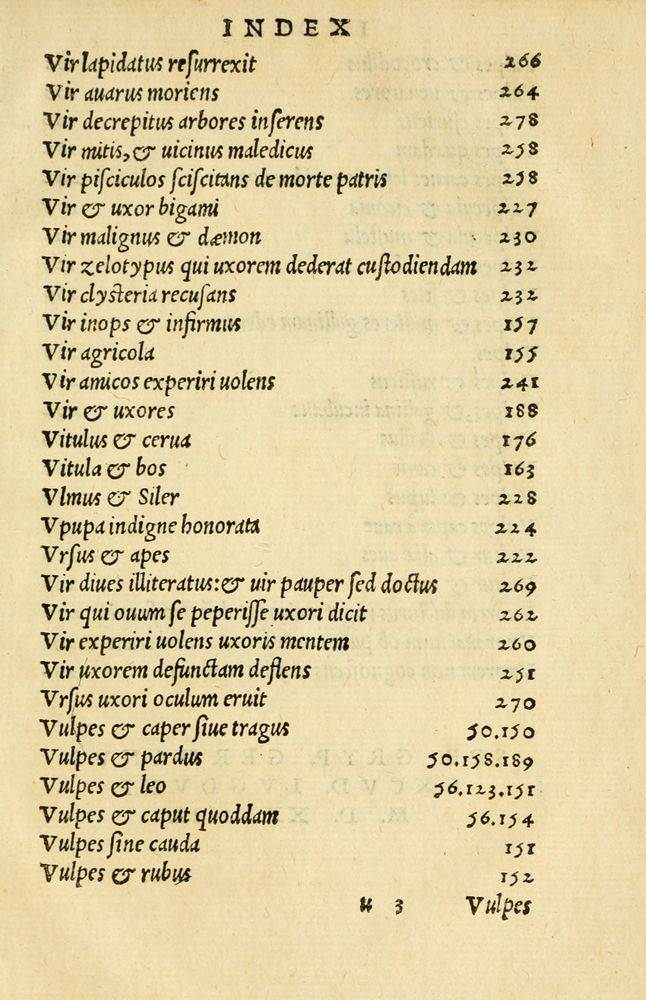 INDEX
Vir lapidatus reſurrexit 266
Vir auarus moriens 264
Vir decrepitus arbores inſerens 278
Vir mitis, & uicinus maledicus 258
Vir piſciculos ſciſcitans de morte patris 258
Vir & uxor bigami 227
Vir malignus & dæmon 230
Vir zelotypus qui uxorem dederat cuſtodiendam 232
Vir clyſteria recuſans 232
Vir inops & infirmus 157
Vir agricola 155
Vir amicos experiri uolens 241
Vir & uxores 188
Vitulus & cerua 176
Vitula & bos 163
Vlmus & Siler 228
Vpupa indigne honorata 224
Vrſus & apes 222
Vir diues illiteratus: & uir pauper ſed doctus 269
Vir qui ouum ſe peperiſſe uxori dicit 262
Vir experiri uolens uxoris mentem 260
Vir uxorem defunctam deflens 251
Vrſus uxori oculum eruit 270
Vulpes & caper ſiue tragus 50.150
Vulpes & pardus 50.158.189
Vulpes & leo 56.123.151
Vulpes & caput quoddam 56.154
Vulpes ſine cauda 151
Vulpes & rubus 152
u 3 Vulpes